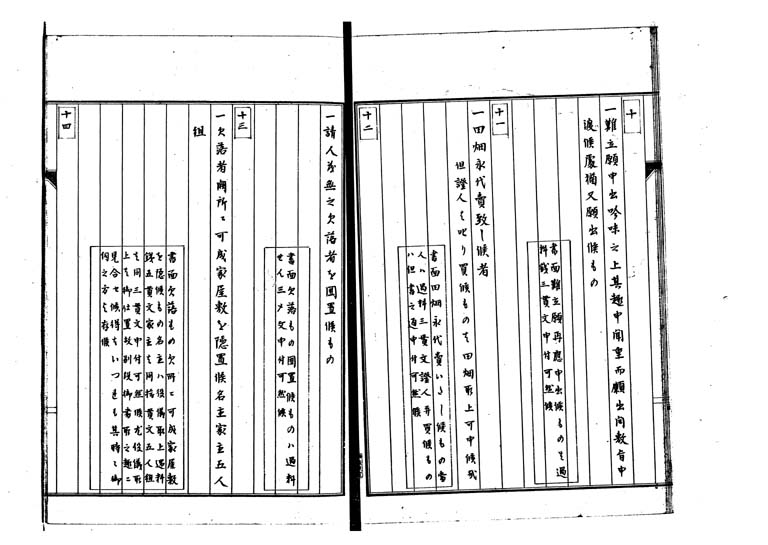 十
一難立願申出吟味之上其趣申聞重而願出間敷旨申
渡候處猶又願出候もの
書面難立願再應申出候ものは過
料銭三貫文申付可然候
十一
一田畑永代賣致し候者
但證人は叱り買候ものは田畑取上可申候哉
書面田畑永代賣いたし候もの當
人ハ過料三貫文證人并買候もの
ハ但書之通申付可然候
十二
一請人無之欠落者を囲置候もの
書面欠落もの囲置候ものハ過料
三貫文申付可然候
十三
一欠落者闕所ニ可成家屋敷を隠置候名主家主五人
組
書面欠落もの欠所ニ可成家屋敷
を隠候もの名主ハ役儀取上過料
銭五貫文家主は同拾貫文五人組
は同三貫文申付可然候尤役儀取
上は御仕置故別段御書取之趣ニ
見合せ候得はいつれも其時々御
伺之方と存候
十四